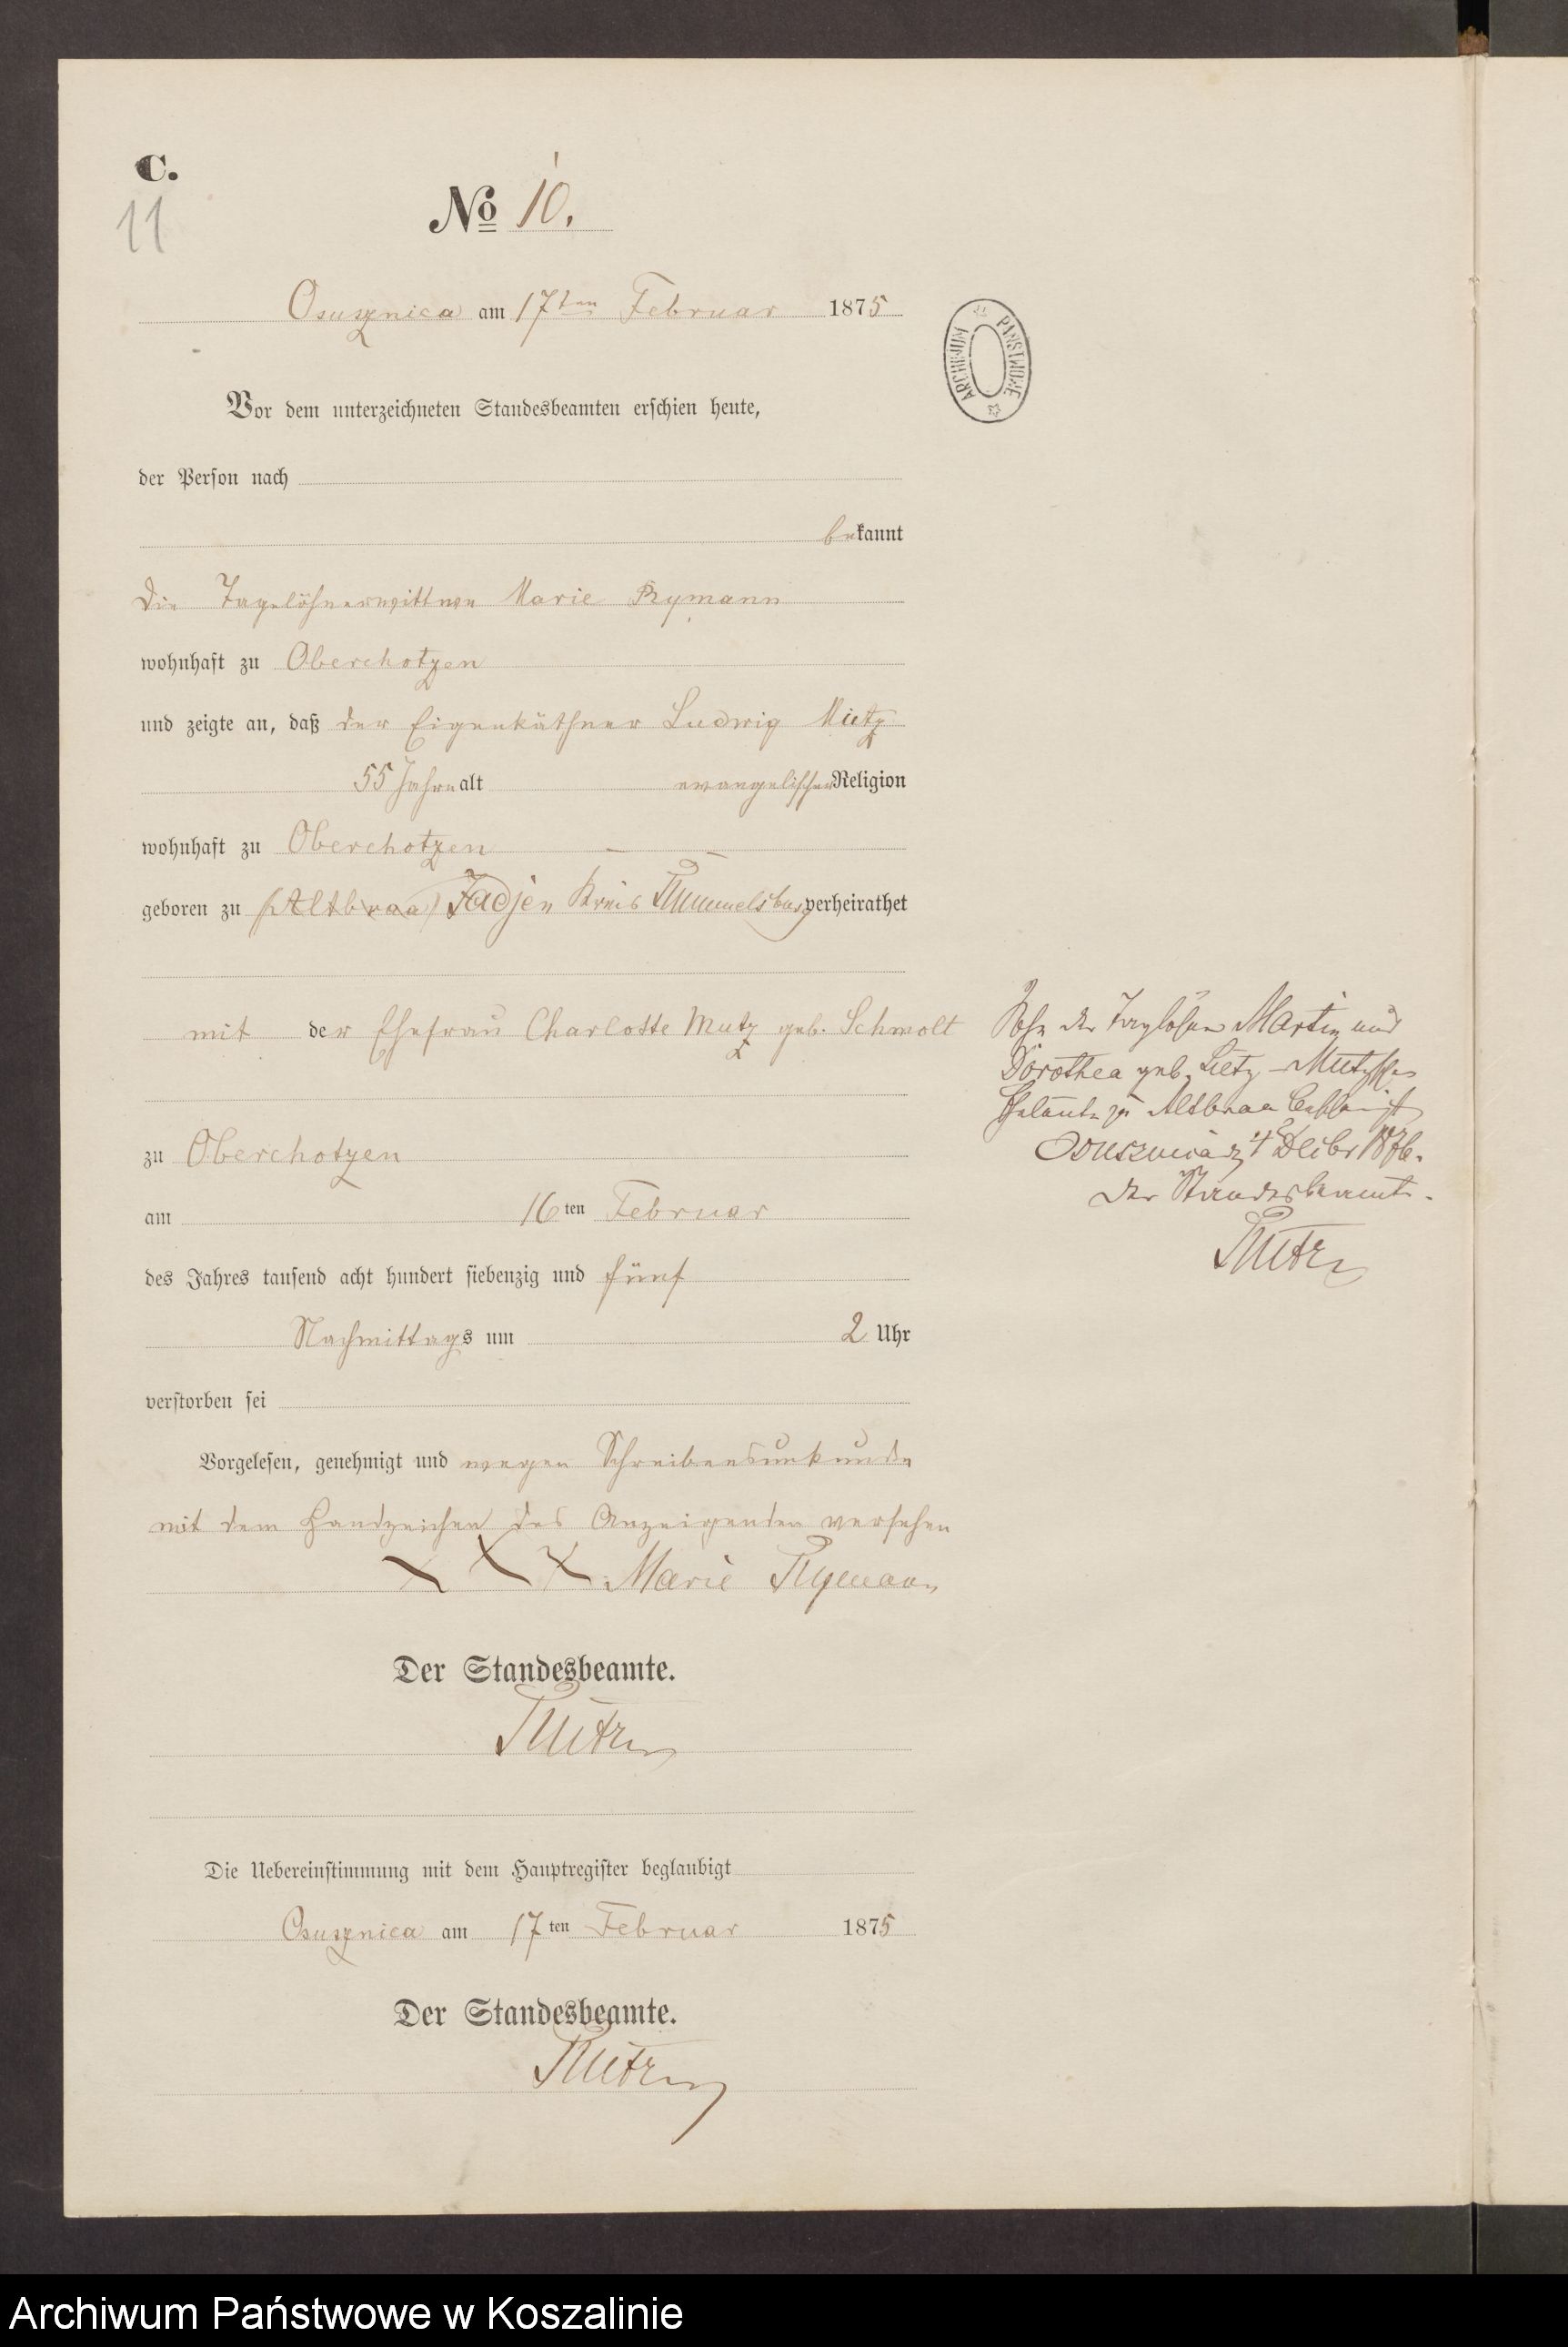 C.
11
No 10.
Osusznica am 17ten Februar 1875
Vor dem unterzeichneten Standesbeamten erschien heute,
der Person nach
bekannt
die Tagelöhnerwittwe Marie Rymann
wohnhaft zu Oberchotzen
und zeigte an, daß der Eigenkäthner Ludwig Mutz
55 Jahre alt evangelischer Religion
wohnhaft zu Oberchotzen
geboren zu (Altbraa) Zadjen Kreis Rummelsburg verheirathet
mit der Ehefrau Charlotte Mutz geb. Schwolt
zu Oberchotzen
am 16ten Februar
des Jahres tausend acht hundert siebenzig und fünf
Nachmittags um 2 Uhr
verstorben sei
Vorgelesen, genehmigt und wegen Schreibensunkunde
mit dem Handzeichen des Anzeigenden versehen
X X X Marie Rymann
Der Standesbeamte.
Die Uebereinstimmung mit dem Hauptregister beglaubigt
Osusznica am 17ten Februar 1875
Der Standesbeamte.
Sohn der Taglöhner Martin und
Dorothea geb. Lietz Mutz
Eheleute zu Altbraa
Osusznica d. 4 1876.
Der Standesbeamte.
ARCHIWUM PAŃSTWOWE
Archiwum Państwowe w Koszalinie